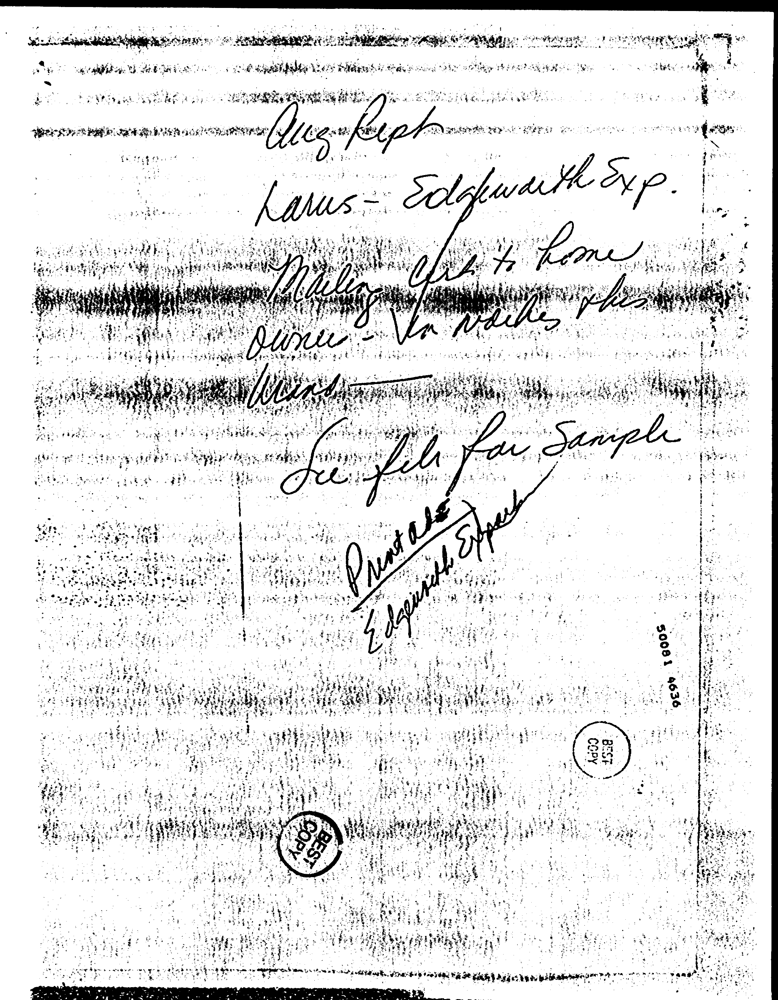 Aug Rept
Larus - Edgeworth Exp.
Mailing to home
owners - this
See file for Sample
Print ads
Edgeworth Export
50081 4636
BEST
COPY
BEST
COPY